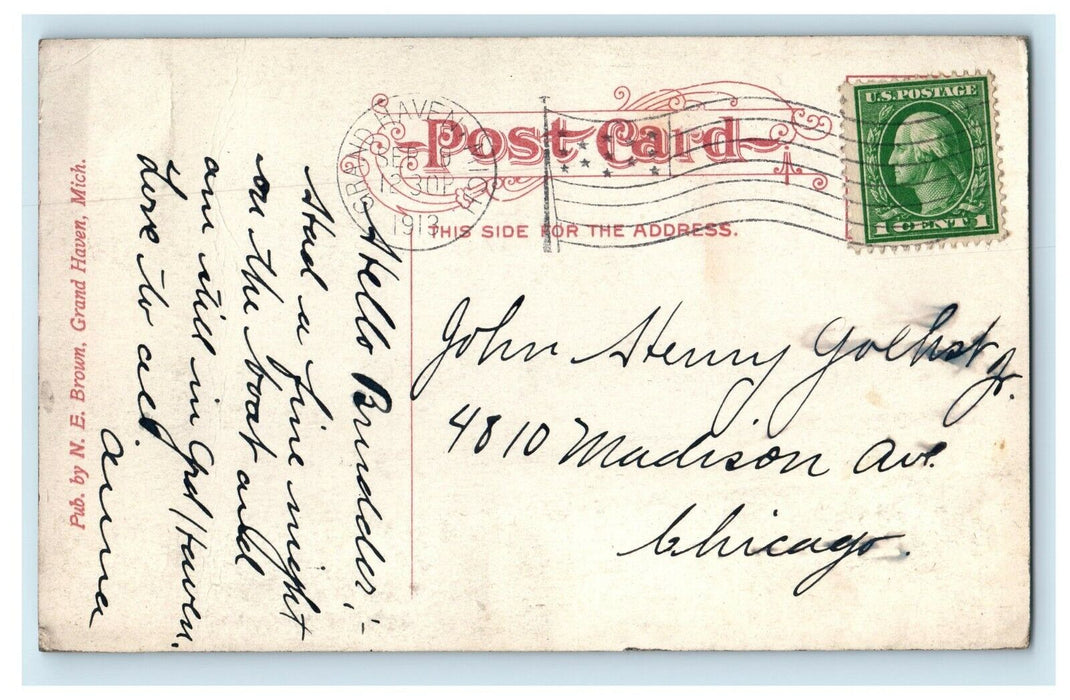 Post Card
THIS SIDE FOR THE ADDRESS.
U.S. POSTAGE
1 CENT 1
GRAND HAVEN MICH
SEP
12 30P
1913
Hello Brudder,-
Had a fine night
on the boat and
am still in Grd Haven.
Love to all
Anna
John Henry Jr.
4810 Madison Ave.
Chicago.
Pub. by N. E. Brown, Grand Haven, Mich.